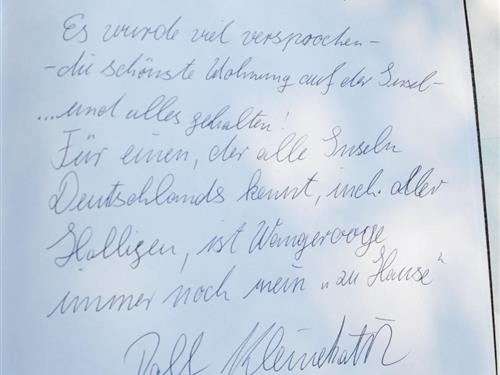 Es wurde viel versprochen -
- die schönste Wohnung auf der Insel -
...und alles gehalten!
Für einen, der alle Inseln
Deutschlands kennt, incl. aller
Halligen, ist Wangerooge
immer noch mein „zu Hause"